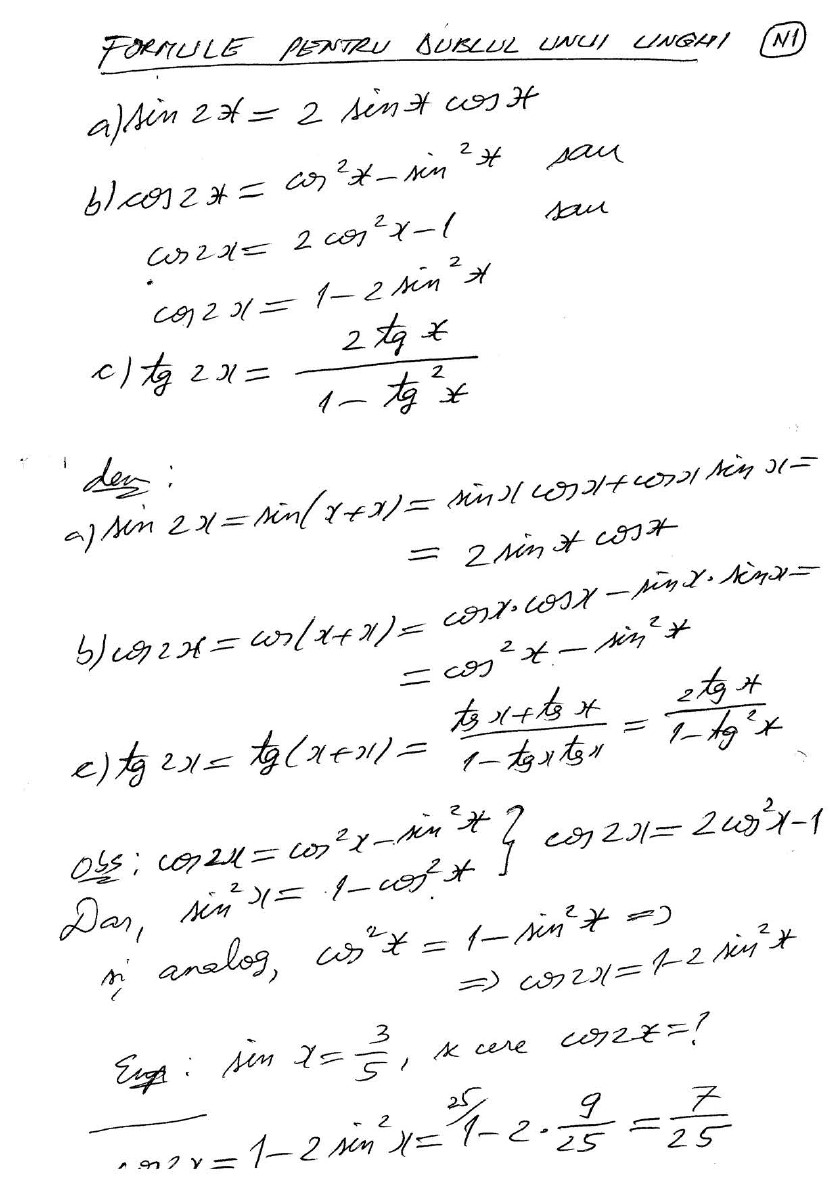 FORMULE PENTRU DUBLUL UNUI UNGHI N1
a) sin 2x = 2 sin x cos x
b) cos 2x = cos²x − sin²x sau
cos 2x = 2 cos²x − 1 sau
cos 2x = 1 − 2 sin²x
c) tg 2x = 2 tg x / 1 − tg²x
dem :
a) sin 2x = sin(x+x) = sin x cos x + cos x sin x =
= 2 sin x cos x
b) cos 2x = cos(x+x) = cos x · cos x − sin x · sin x =
= cos²x − sin²x
c) tg 2x = tg(x+x) = tg x + tg x / 1 − tg x tg x = 2 tg x / 1 − tg²x
Obs : cos 2x = cos²x − sin²x } cos 2x = 2 cos²x − 1
Dar, sin²x = 1 − cos²x
și analog, cos²x = 1 − sin²x =>
=> cos 2x = 1 − 2 sin²x
Exp : sin x = 3/5 , se cere cos 2x = ?
cos 2x = 1 − 2 sin²x = 25/ 1 − 2 · 9/25 = 7/25